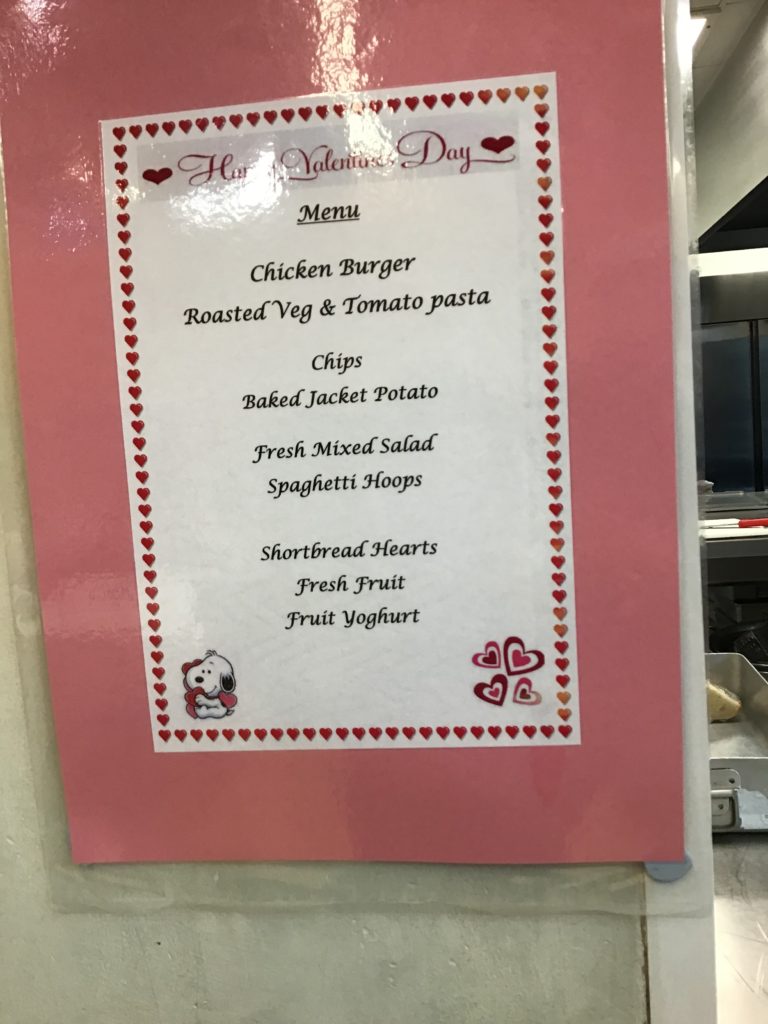 Happy Valentine's Day
Menu
Chicken Burger
Roasted Veg & Tomato pasta
Chips
Baked Jacket Potato
Fresh Mixed Salad
Spaghetti Hoops
Shortbread Hearts
Fresh Fruit
Fruit Yoghurt